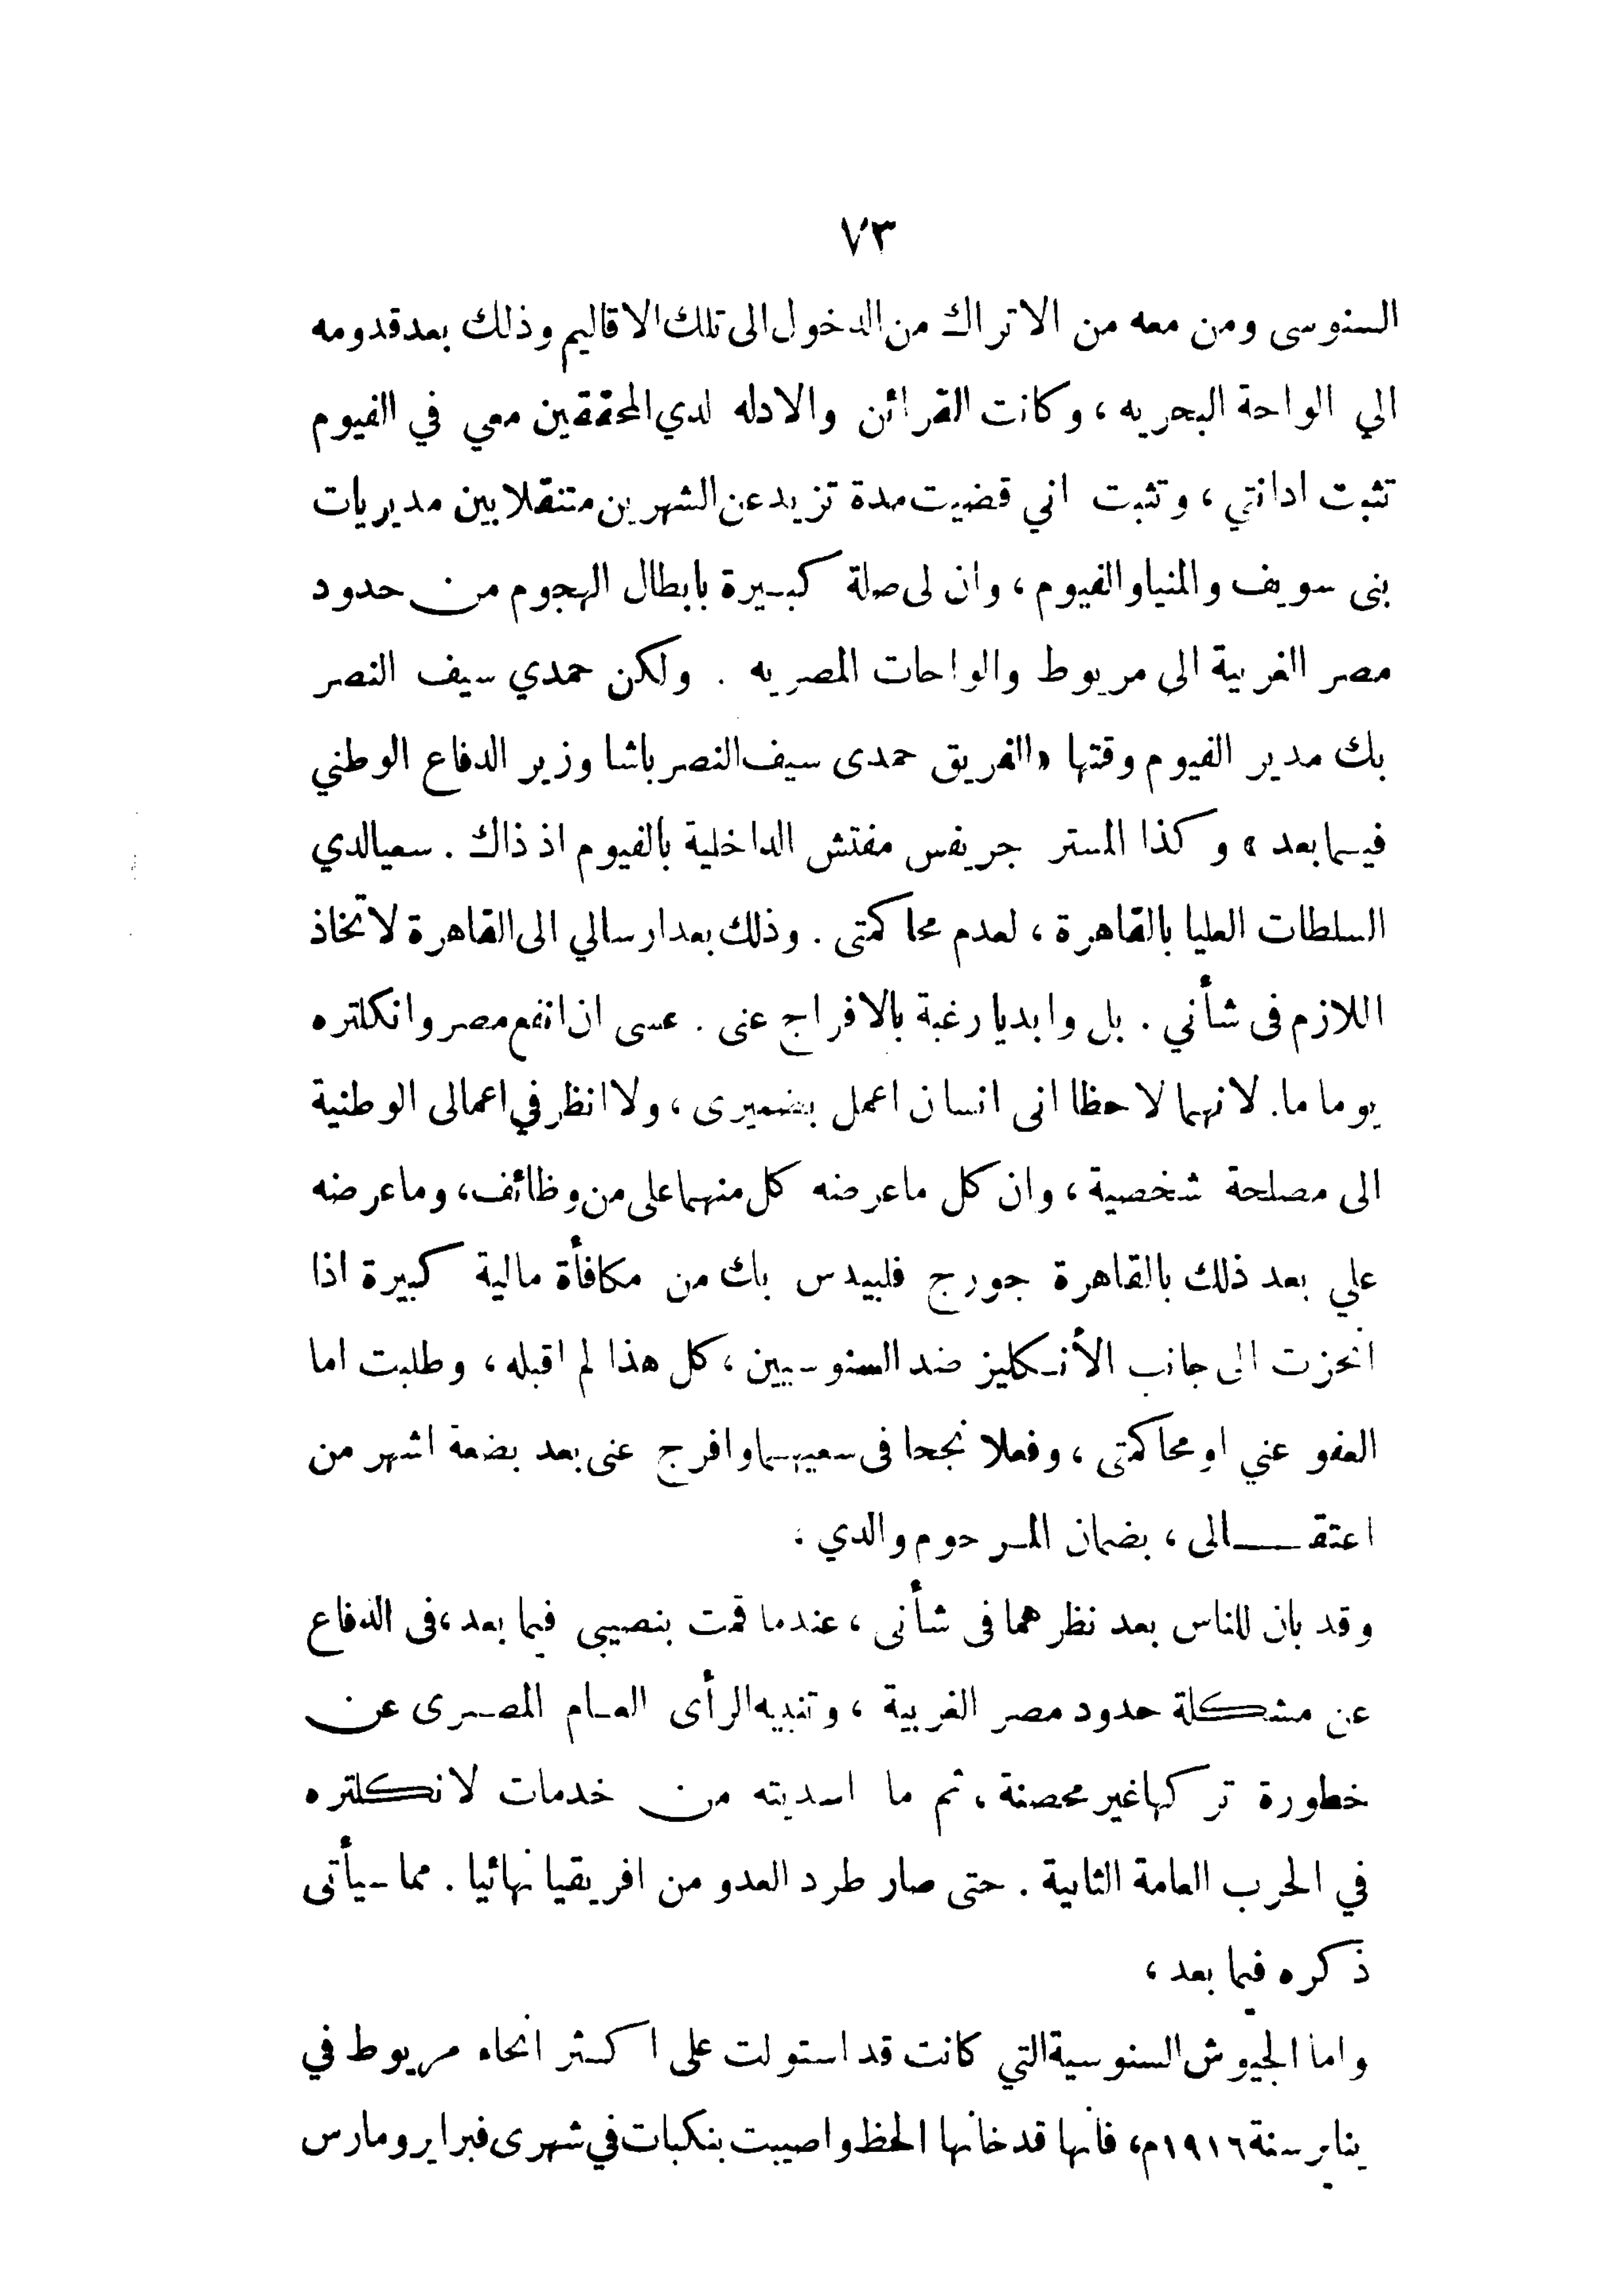 ٧٣
السنوسى ومن معه من الاتراك من الدخول الى تلك الاقاليم وذلك بعد قدومه
الي الواحة البحريه ، وكانت القرائن والادله لدي المحققين معي في الفيوم
تثبت ادانتي ، وتثبت اني قضيت مدة تزيد عن الشهرين متنقلا بين مديريات
بنى سويف والمنيا والفيوم ، وان لى صلة كبيرة بابطال الهجوم من حدود
مصر الغربية الى مريوط والواحات المصريه . ولكن حمدي سيف النصر
بك مدير الفيوم وقتها «الفريق حمدى سيف النصر باشا وزير الدفاع الوطني
فيما بعد » وكذا المستر جريفس مفتش الداخلية بالفيوم اذ ذاك . سعيا لدي
السلطات العليا بالقاهرة ، لعدم محاكمتى . وذلك بعد ارسالي الى القاهرة لاتخاذ
اللازم فى شأني . بل وابديا رغبة بالافراج عنى . عسى ان انفع مصر وانكلتره
يوما ما. لانهما لاحظا انى انسان اعمل بضميرى ، ولا انظر في اعمالى الوطنية
الى مصلحة شخصية ، وان كل ماعرضه كل منهما على من وظائف، وما عرضه
علي بعد ذلك بالقاهرة جورج فلبيدس بك من مكافأة مالية كبيرة اذا
انحزت الى جانب الأنكليز ضد السنوسيين ، كل هذا لم اقبله ، وطلبت اما
العفو عني او محاكمتى ، وفعلا نجحا فى سعيهما وافرج عنى بعد بضعة اشهر من
اعتقالى ، بضمان المرحوم والدي .
وقد بان للناس بعد نظرهما فى شأنى ، عندما قمت بنصيبى فيما بعد ،فى الدفاع
عن مشكلة حدود مصر الغربية ، وتنبيه الرأى العام المصرى عن
خطورة تركها غير محصنة ، ثم ما اسديته من خدمات لانكلتره
في الحرب العامة الثانية . حتى صار طرد العدو من افريقيا نهائيا . مما سيأتى
ذكره فيما بعد ،
واما الجيوش السنوسية التي كانت قد استولت على اكثر انحاء مريوط في
يناير سنة ١٩١٦م، فانها قد خانها الحظ واصيبت بنكبات في شهرى فبراير ومارس